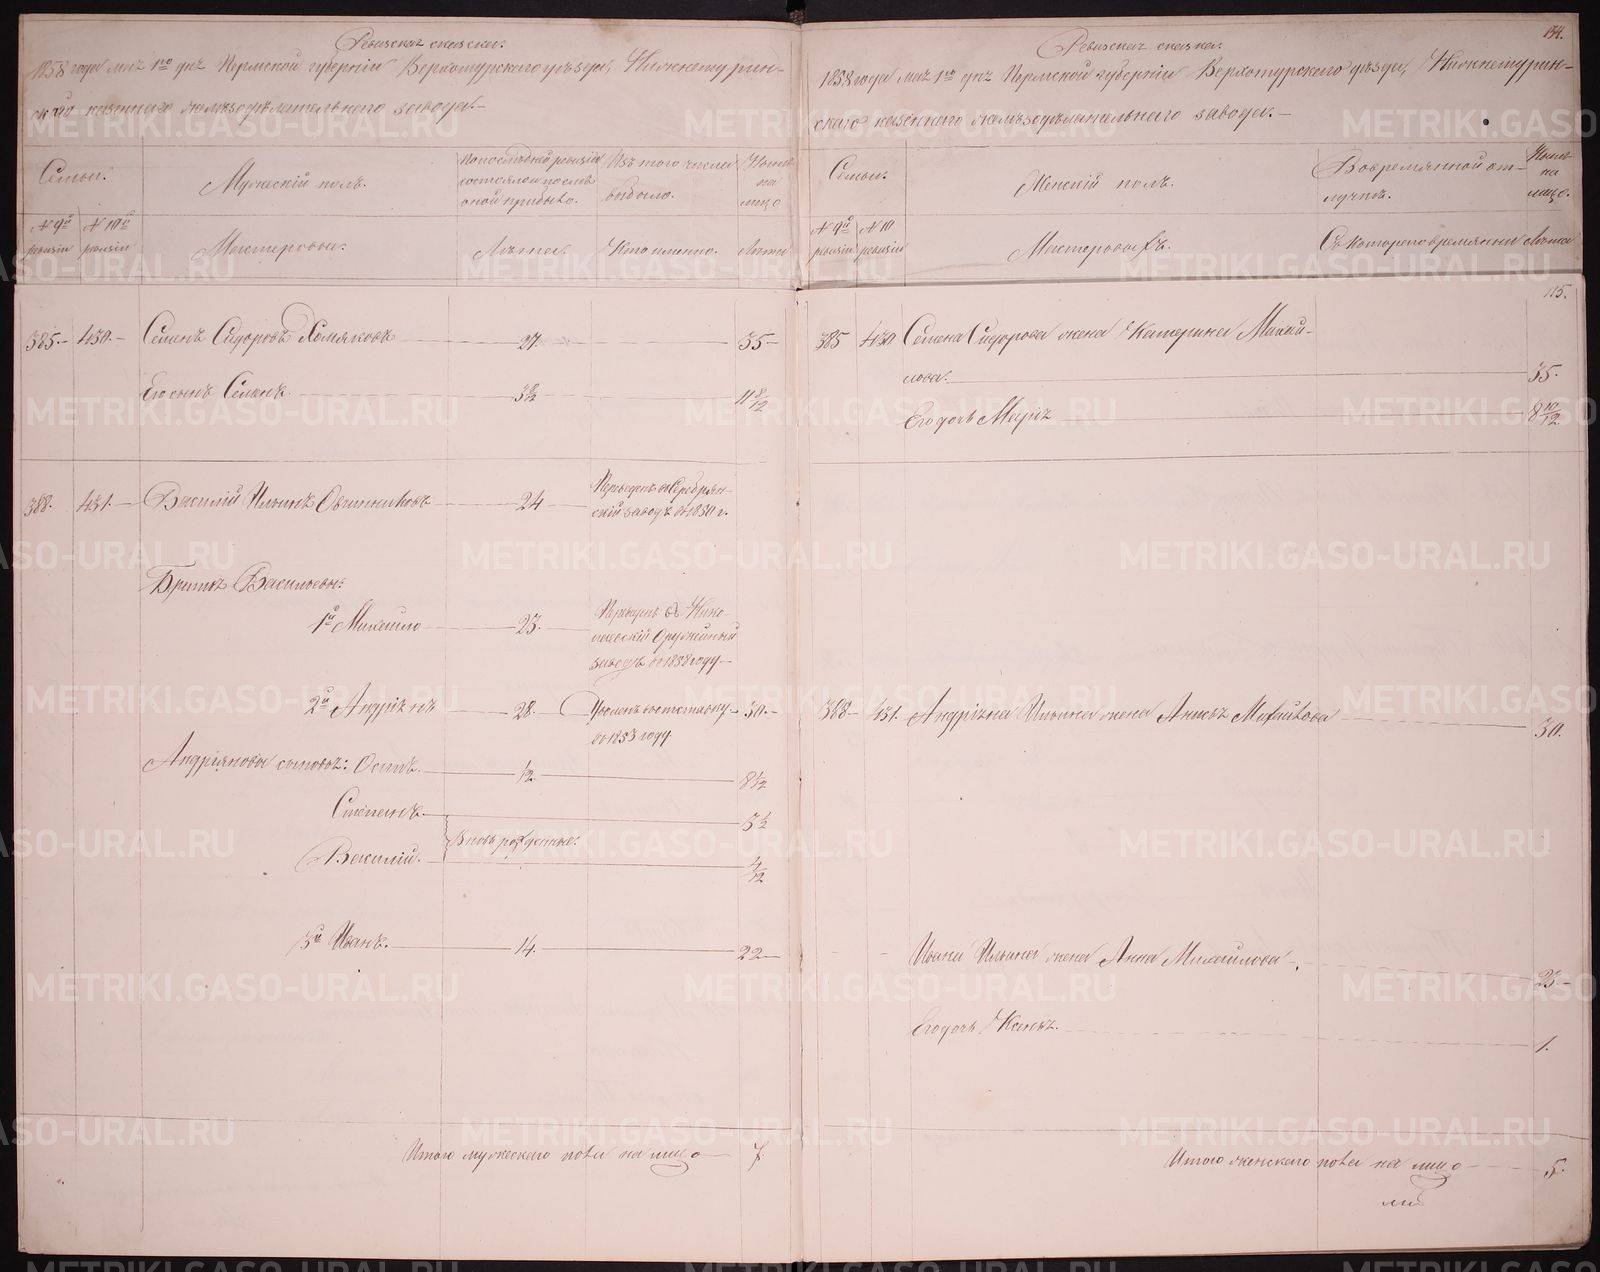 Ревизская сказка.
1858 года мая 1го дня Пермской губернiи Верхотурскаго уѣзда, Нижнетурин-
скаго казеннаго желѣзодѣлательнаго завода.-
Семьи.
Мужескiй полъ.
По послѣдней ревизiи
состояло и послѣ
оной прибыло.
Изъ того числа
выбыло.
Нынѣ
на
лицо
№ 9й
ревизiи
№ 10й
ревизiи
Мастеровые.
Лѣта.
Когда именно.
Лѣта
385.- 430.- Семенъ Сидоровъ Хомяковъ 27. 35-
Его сынъ Семенъ 3 8/12 11 8/12
388. 431.- Василiй Ильинъ Овчинниковъ 24
Переведенъ въ Серебрян-
скiй заводъ въ 1850 г.
Братья Васильевы:
1й Михаило 23.
Переведенъ въ Нико-
лаевскiй Оружейный
заводъ въ 1858 году-
2й Андрiянъ 28. Уволенъ въ отставку 30.-
въ 1853 году
Андрiяновы сыновья: Осипъ. 1/2 8 1/2
Степанъ 3 1/2
Вновь рожденные:
Василiй. 4/12
3й Иванъ. 14. 22-
Итого мужескаго пола на лицо 7.
134.
Ревизская сказка.
1858 года мая 1го дня Пермской губернiи Верхотурскаго уѣзда, Нижнетурин-
скаго казеннаго желѣзодѣлательнаго завода.-
Семьи.
Женскiй полъ.
Во временной от-
лучкѣ.
Нынѣ
на
лицо.
№ 9й
ревизiи
№ 10
ревизiи
Мастеровыхъ.
Съ котораго времяни
Лѣта
115.
385 430 Семена Сидорова жена Катерина Михаи-
лова. 35.
Его дочь Марiя 8 10/12.
388- 431. Андрiяна Ильина жена Анисья Михайлова 30.
Ивана Ильина жена Анна Михаилова 23.-
Его дочь Ксенья. 1.
Итого женскаго пола на лицо 5.
METRIKI.GASO-URAL.RU